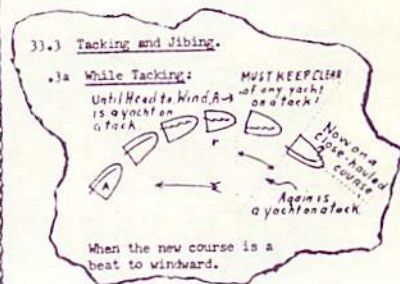 33.3 Tacking and Jibing.
.3a While Tacking:
Until Head to Wind, A
is a yacht on
a tack
MUST KEEP CLEAR
of any yacht
on a tack!
Now on a
close-hauled
course
A
Again is
a yacht on a tack
When the new course is a
beat to windward.